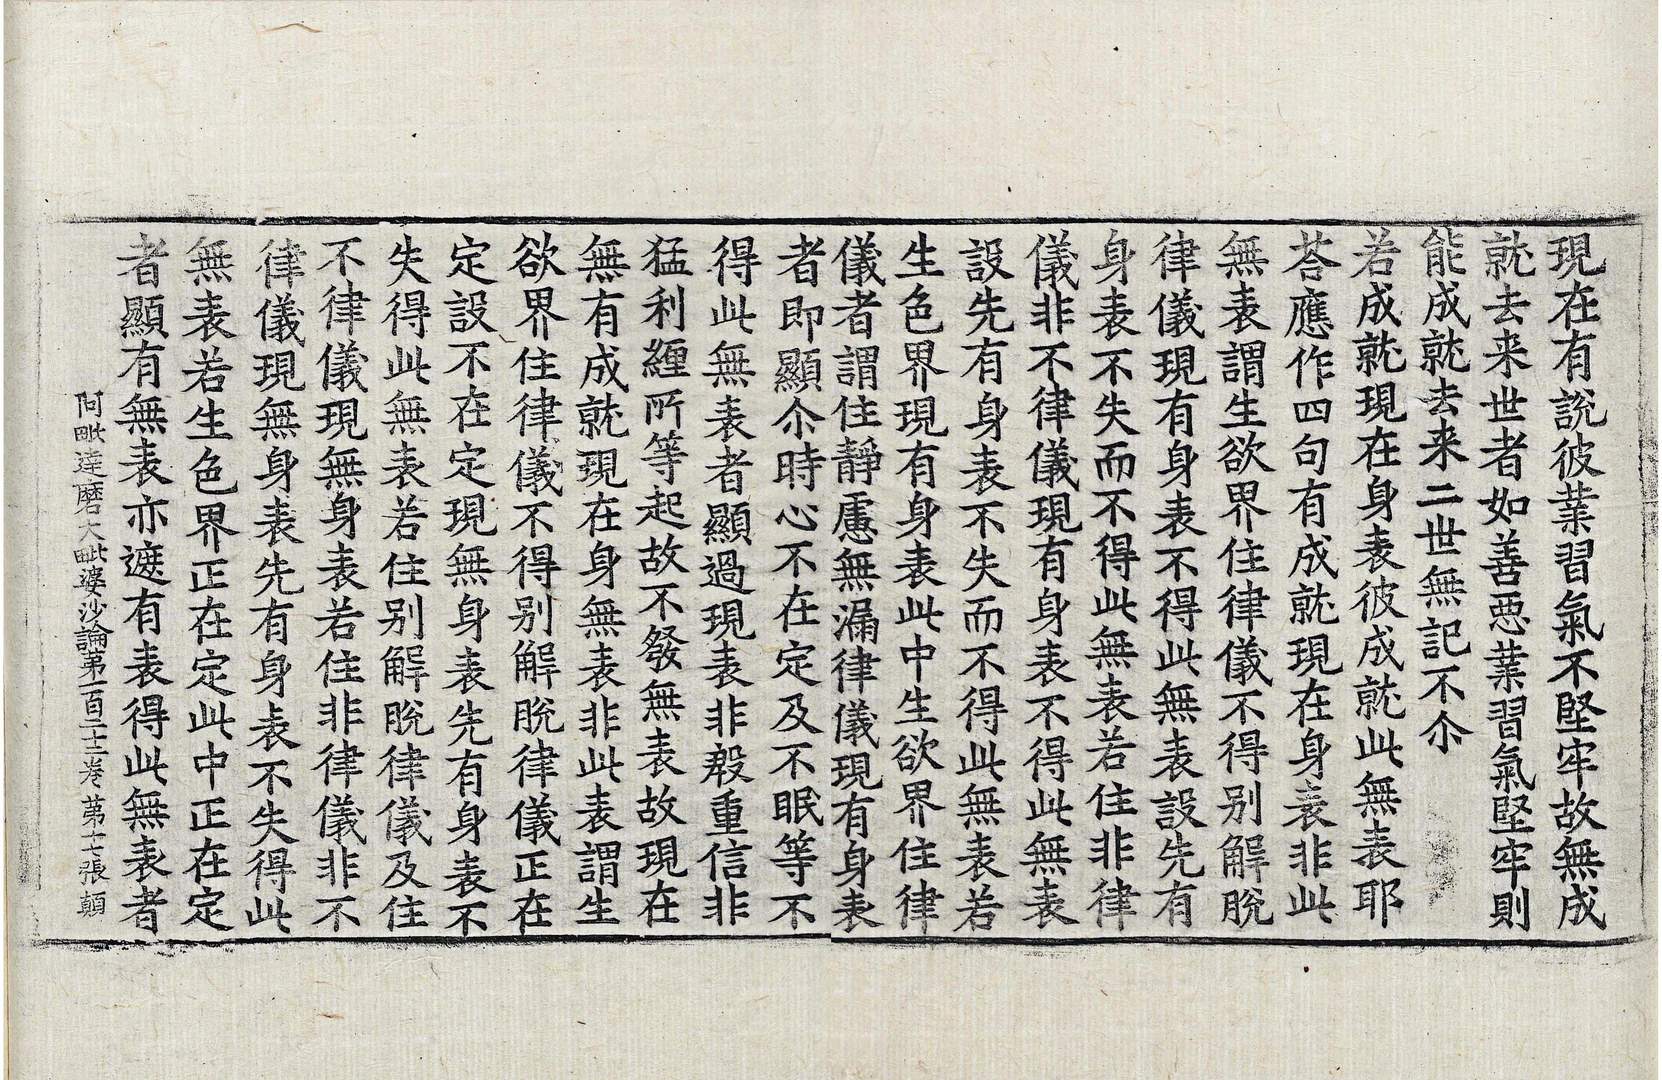 現在有說彼業習氣不堅牢故無成
就去来世者如善惡業習氣堅牢則
能成就去来二世無記不尒
若成就現在身表彼成就此無表耶
荅應作四句有成就現在身表非此
無表謂生欲界住律儀不得别解脫
律儀現有身表不得此無表設先有
身表不失而不得此無表若住非律
儀非不律儀現有身表不得此無表
設先有身表不失而不得此無表若
生色界現有身表此中生欲界住律
儀者謂住靜慮無漏律儀現有身表
者即顯尒時心不在定及不眠等不
得此無表者顯過現表非殷重信非
猛利纏所等起故不發無表故現在
無有成就現在身無表非此表謂生
欲界住律儀不得别解脫律儀正在
定設不在定現無身表先有身表不
失得此無表若住别解脫律儀及住
不律儀現無身表若住非律儀非不
律儀現無身表先有身表不失得此
無表若生色界正在定此中正在定
者顯有無表亦遮有表得此無表者
阿毗達磨大毗婆沙論第一百二十三卷 第十七張 顛